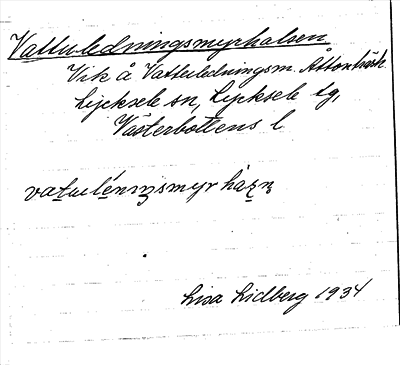 Vattuledningsmyrhalsen
Vik å Vattuledningsm. Åttonträsk
Lycksele sn, Lycksele tg,
Västerbottens l
vatulénıŋsmyrhàʂn̥
Lisa Lidberg 1934